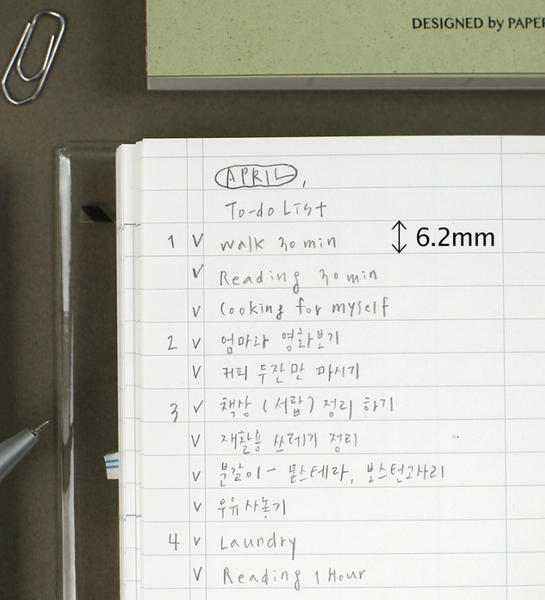 DESIGNED by PAPER
APRIL,
To-do List
6.2mm
1 V Walk 30 min
V Reading 30 min
V Cooking for myself
2 V 엄마랑 영화보기
V 커피 두잔만 마시기
3 V 책상 (서랍) 정리 하기
V 재활용 쓰레기 정리
V 분갈이 - 몬스테라, 보스턴고사리
V 우유사놓기
4 V Laundry
V Reading 1 Hour